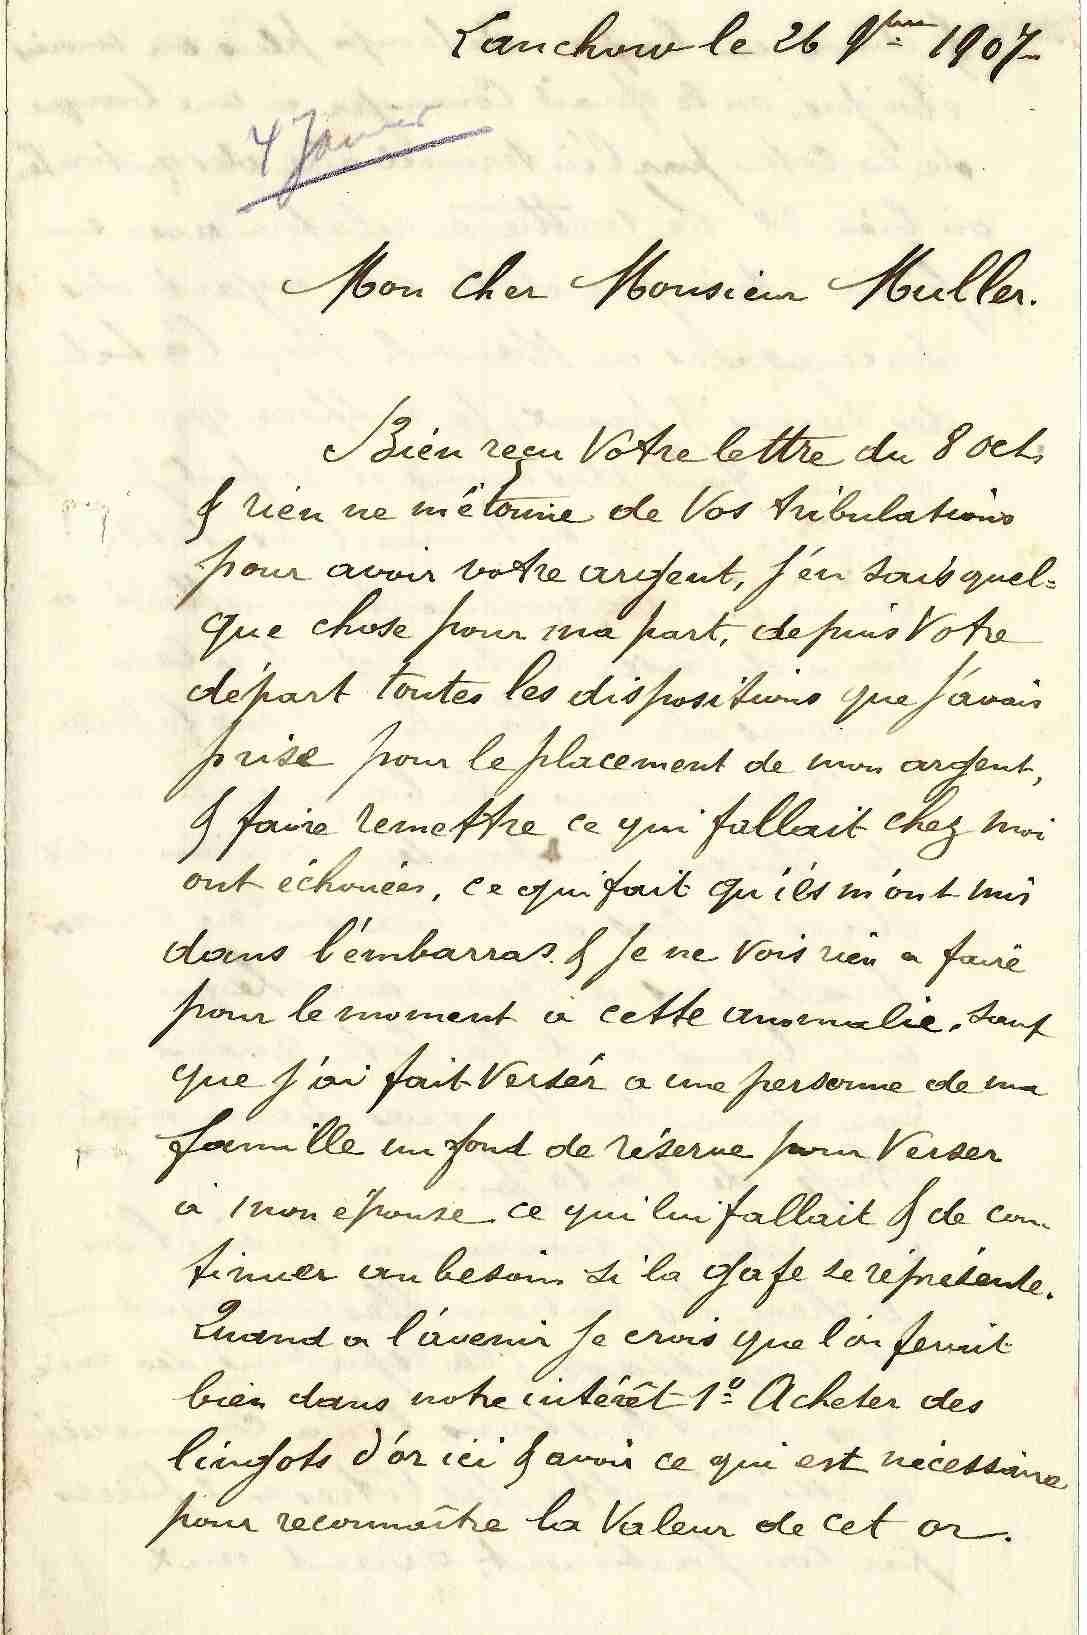 Lanchow le 26 9bre 1907
4 Janvier
Mon cher Monsieur Muller.
Bien reçu Votre lettre du 8 Oct.
& rien ne m'étonne de Vos tribulations
pour avoir votre argent, j'en sais quel=
que chose pour ma part, depuis Votre
départ toutes les dispositions que j'avais
prise pour le placement de mon argent,
& faire remettre ce qui fallait chez moi
ont échouées, ce qui fait qu'ils m'ont mis
dans l'embarras. & je ne Vois rien a faire
pour le moment a cette anomalie. sauf
que j'ai fait Verser a une personne de ma
famille un fond de réserve pour Verser
à mon épouse ce qui lui fallait & de con-
tinuer au besoin si la gafe se représente.
Quand a l'avenir je crois que l'on ferait
bien dans notre intérêt 1º Acheter des
lingots d'or ici & avoir ce qui est nécessaire
pour reconnaître la Valeur de cet or.